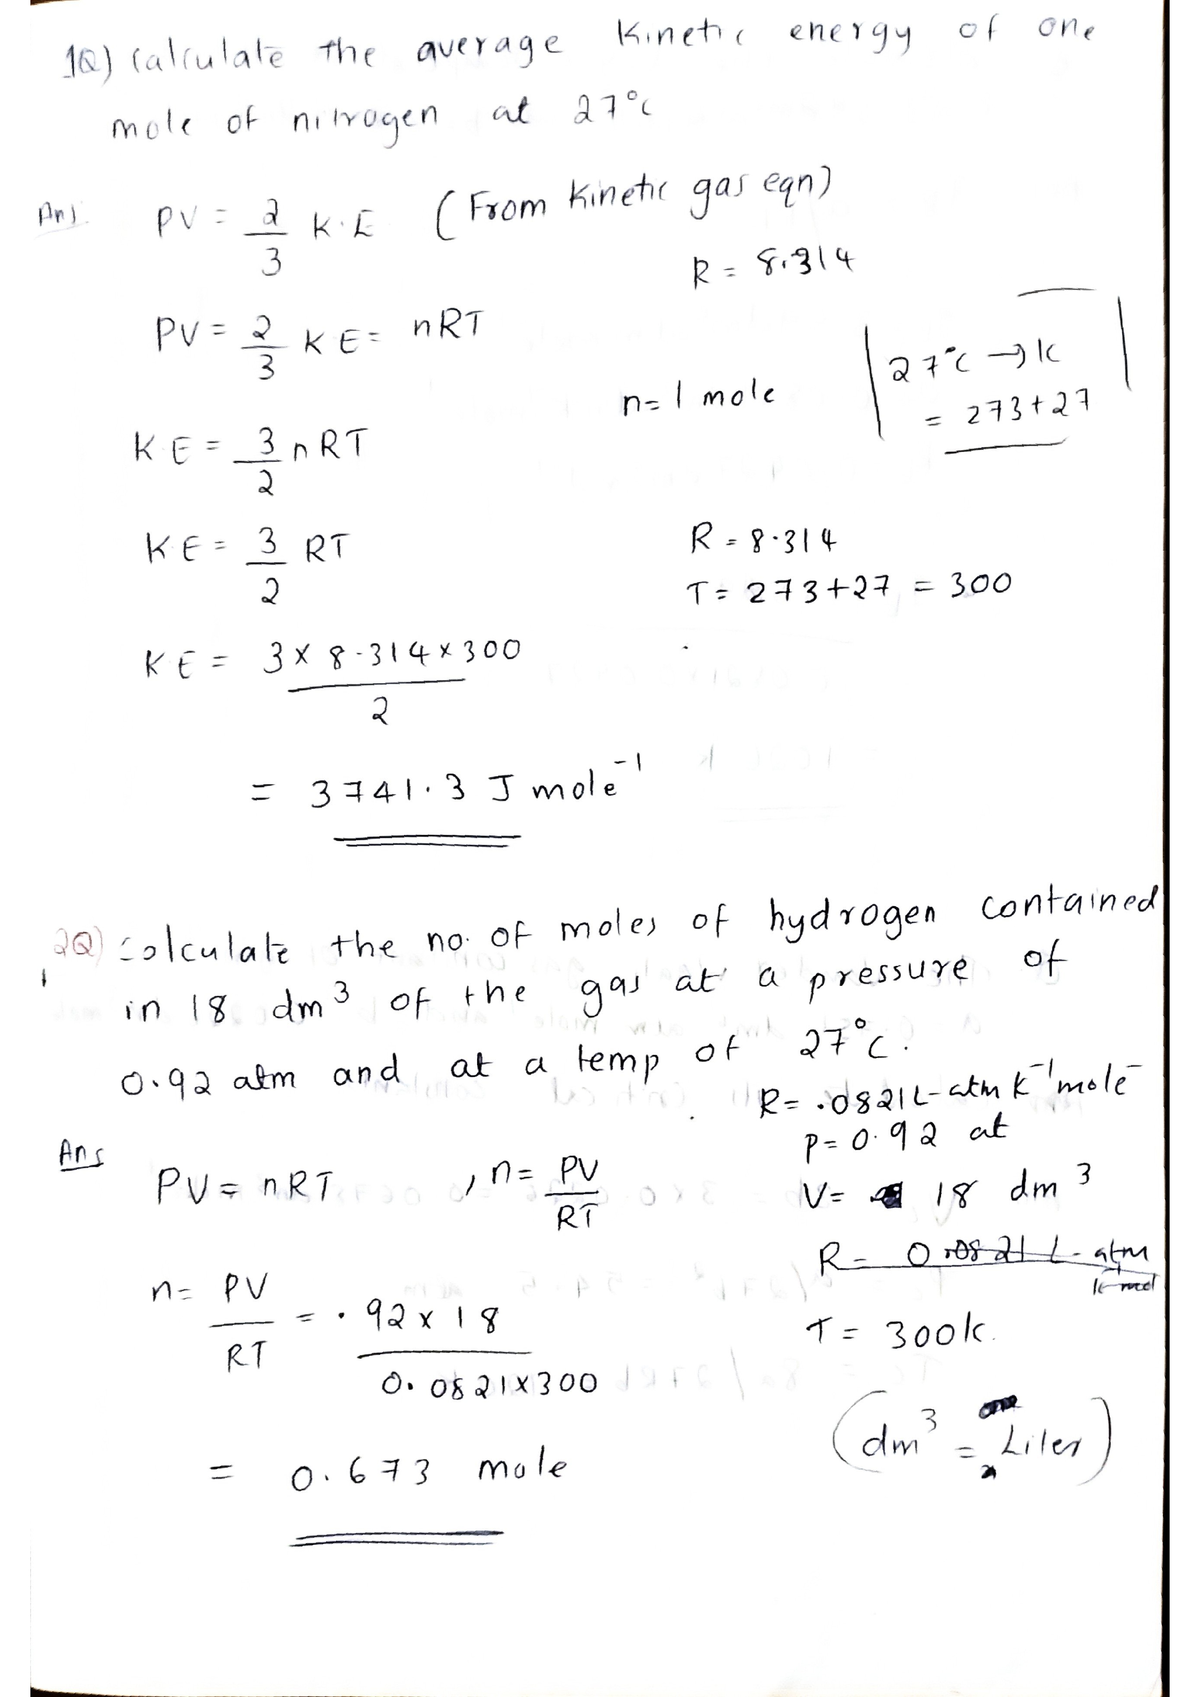 1Q) Calculate the average Kinetic energy of one
mole of nitrogen at 27°C
Ans. PV = 2/3 K.E (From Kinetic gas eqn)
R = 8.314
PV = 2/3 KE = nRT
27°C → K
n = 1 mole
= 273+27
KE = 3/2 nRT
KE = 3/2 RT
R = 8.314
T = 273+27 = 300
KE = 3 × 8.314 × 300 / 2
= 3741.3 J mole⁻¹
2Q) Calculate the no. of moles of hydrogen contained
in 18 dm³ of the gas at a pressure of
0.92 atm and at a temp of 27°C.
R = .0821 L-atm K⁻¹ mole⁻
P = 0.92 at
Ans PV = nRT , n = PV/RT
V = 18 dm³
R = 0.0821 L-atm
K mol
n = PV/RT = .92 × 18 / 0.0821×300
T = 300K.
(dm³ = Liter)
= 0.673 mole